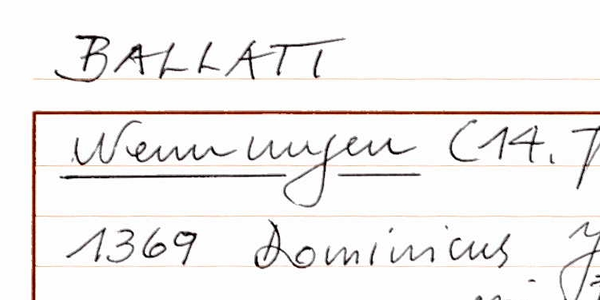 BALLATI
Nennungen (14. J
1369 Dominicus